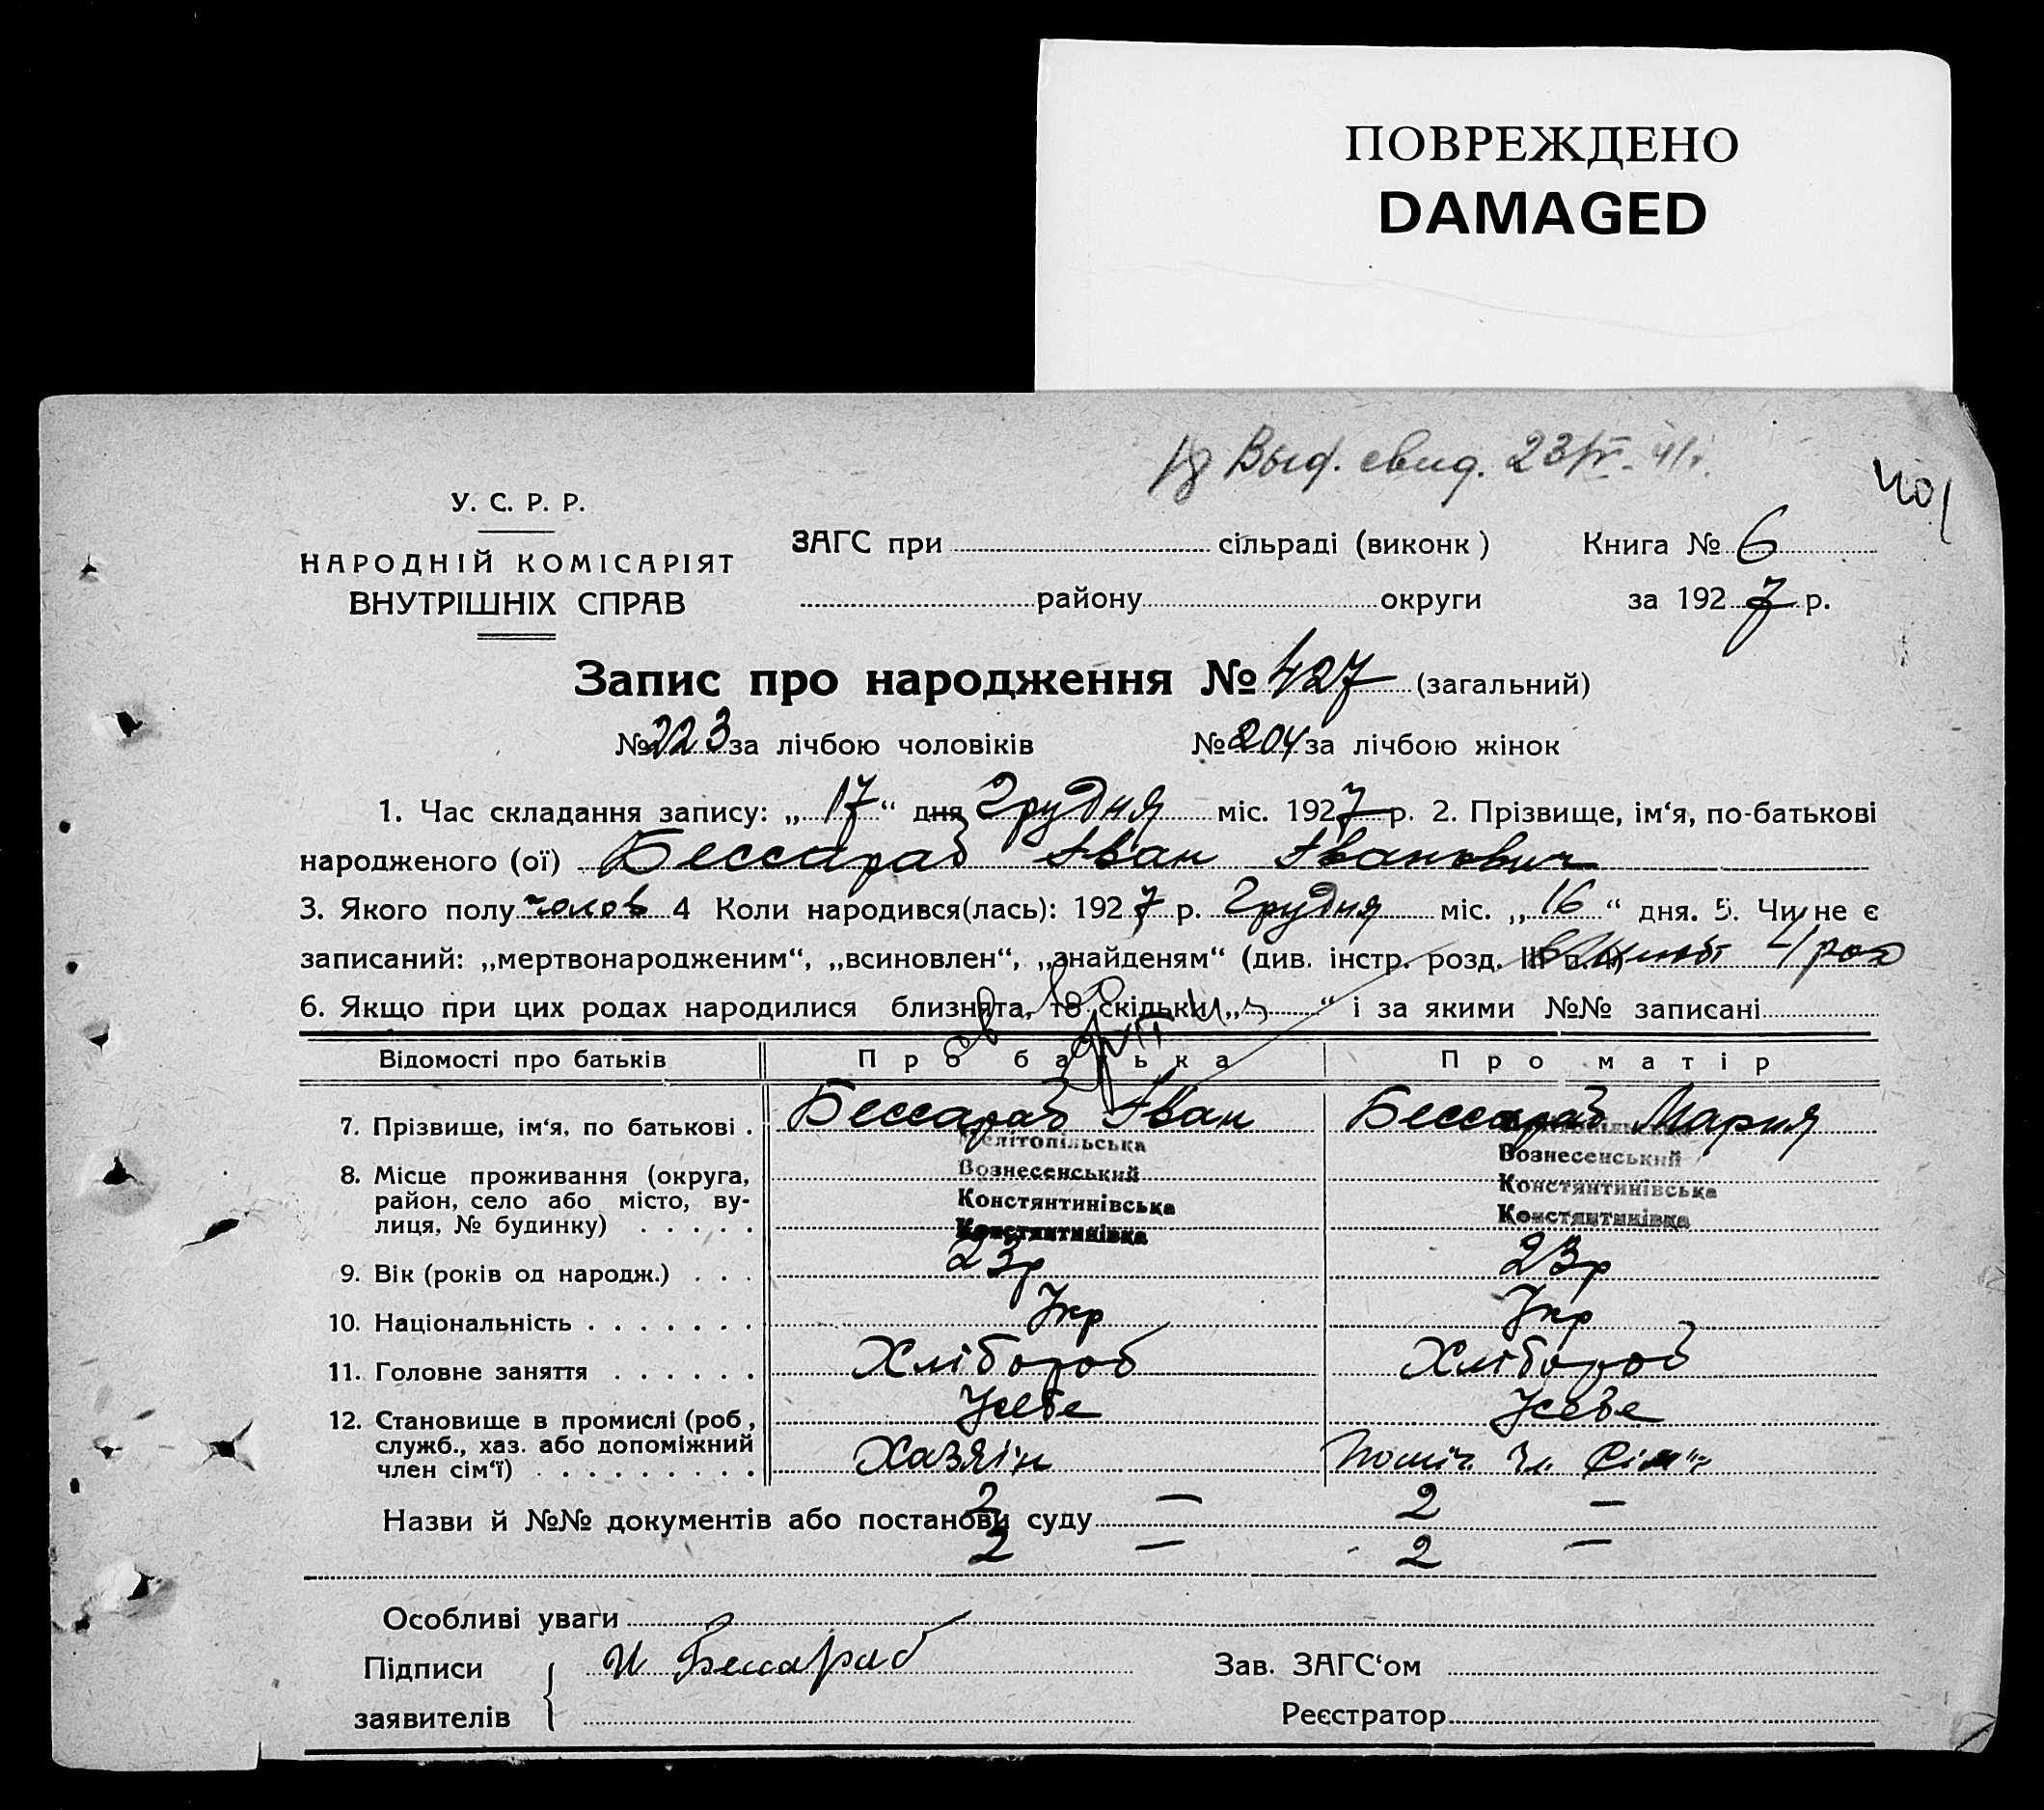 ПОВРЕЖДЕНО
DAMAGED
Выд. свид. 23/IV-41г.
401
У. С. Р. Р.
НАРОДНІЙ КОМІСАРІЯТ
ВНУТРІШНІХ СПРАВ
ЗАГС при сільраді (виконк)
району округи
Книга № 6
за 1927 р.
Запис про народження № 427 (загальний)
№ 223 за лічбою чоловіків № 204 за лічбою жінок
1. Час складання запису: „17“ дня Грудня міс. 1927 р. 2. Прізвище, ім‘я, по-батькові
народженого (ої) Бессараб Іван Іванович
3. Якого полу чолов 4 Коли народився(лась): 1927 р. Грудня міс. „16“ дня. 5. Чи не є
записаний: „мертвонародженим“, „всиновлен“, „знайденям“ (див. інстр. розд. III п. 4)
6. Якщо при цих родах народилися близнята, то скільки „ “ і за якими №№ записані
Відомості про батьків Про батька Про матір
7. Прізвище, ім‘я, по батькові . Бессараб Іван Бессараб Мария
8. Місце проживання (округа, район, село або місто, ву-
лиця, № будинку) . . . . .
Мелітопільська
Вознесенський
Констянтинівська
Констянтинівка
Вознесенський
Констянтинівська
Констянтинівка
9. Вік (років од народж.) . . . 23р 23р
10. Національність . . . . . . . Укр Укр
11. Головне заняття . . . . . . Хлібороб Хлібороб
12. Становище в промислі (роб, Усебе Усебе
служб., хаз. або допоміжний
член сім‘ї) . . . . . . . . . Хазяін Поміч. чл. сім'ї
Назви й №№ документів або постанови суду 2 — 2 —
2 — 2 —
Особливі уваги
Підписи И Бессараб Зав. ЗАГС‘ом
заявителів Реєстратор